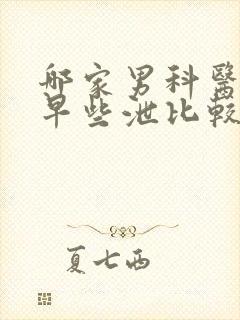 哪家男科醫
早些泄比較
夏七西